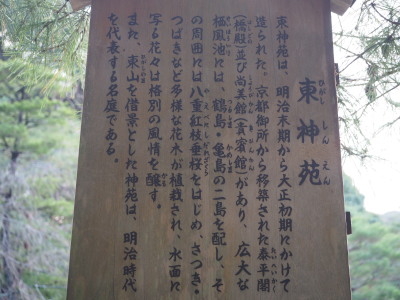 東神苑
ひがし しん えん
東神苑は、明治末期から大正初期にかけて
造られた、京都御所から移築された泰平閣
(橋殿)並び尚美館(貴賓館)があり、広大な
栖鳳池には、鶴島・亀島の二島を配し、そ
の周囲には八重紅枝垂桜をはじめ、さつき・
つばきなど多様な花木が植栽され、水面に
写る花々は格別の風情を醸す。
また、東山を借景とした神苑は、明治時代
を代表する名庭である。